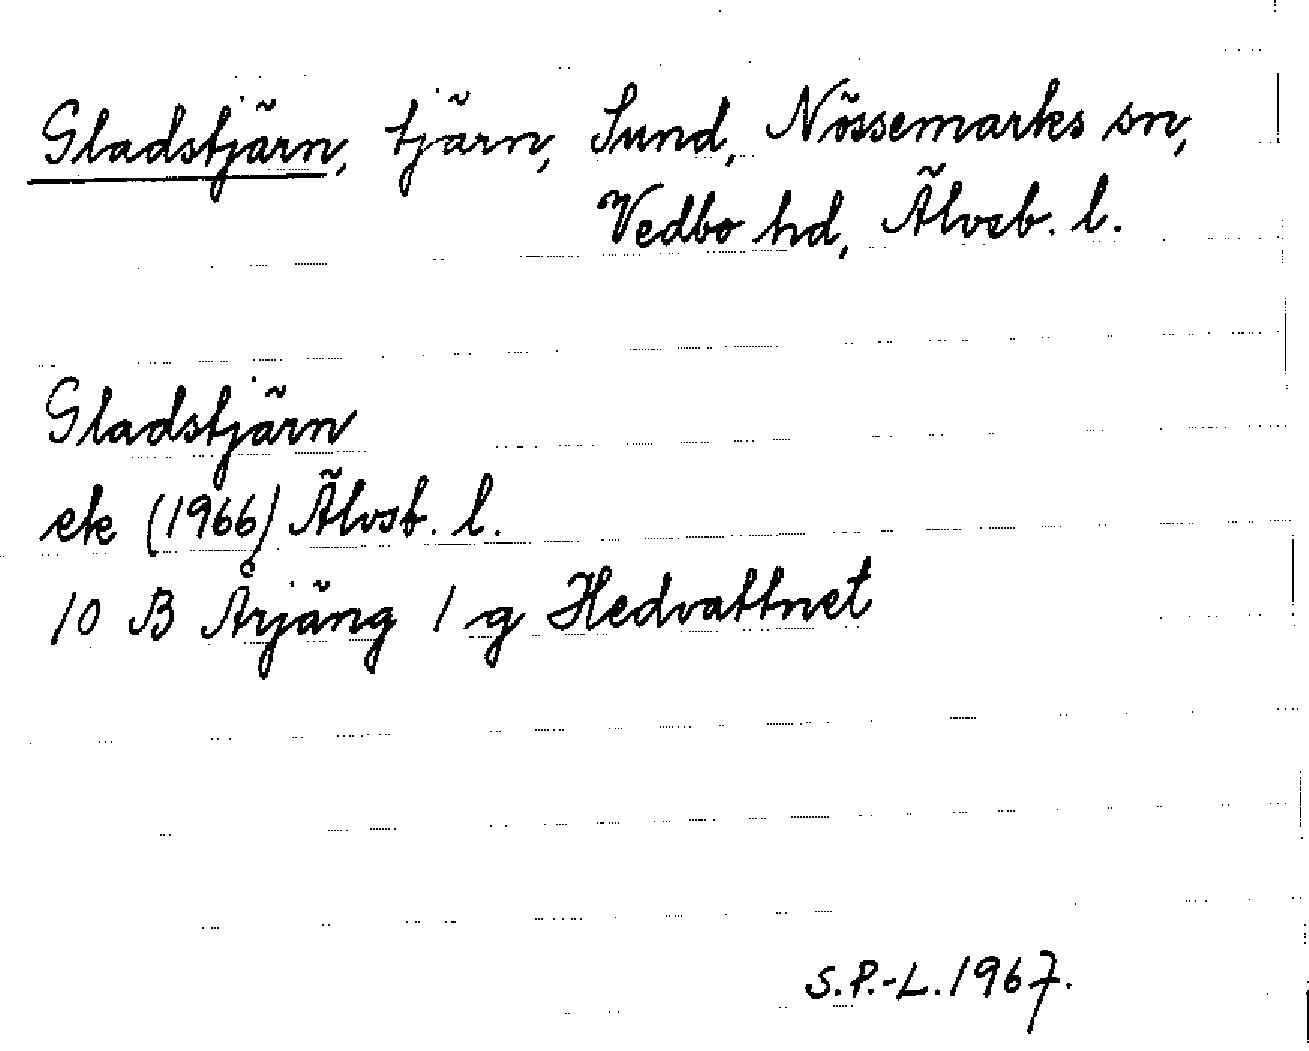 Gladstjärn, tjärn, Sund, Nössemarks sn,
Vedbo hd, Älvsb. l.
Gladstjärn
ek (1966) Älvsb. l.
10 B Årjäng 1 g Hedvattnet
S.P.-L. 1967.